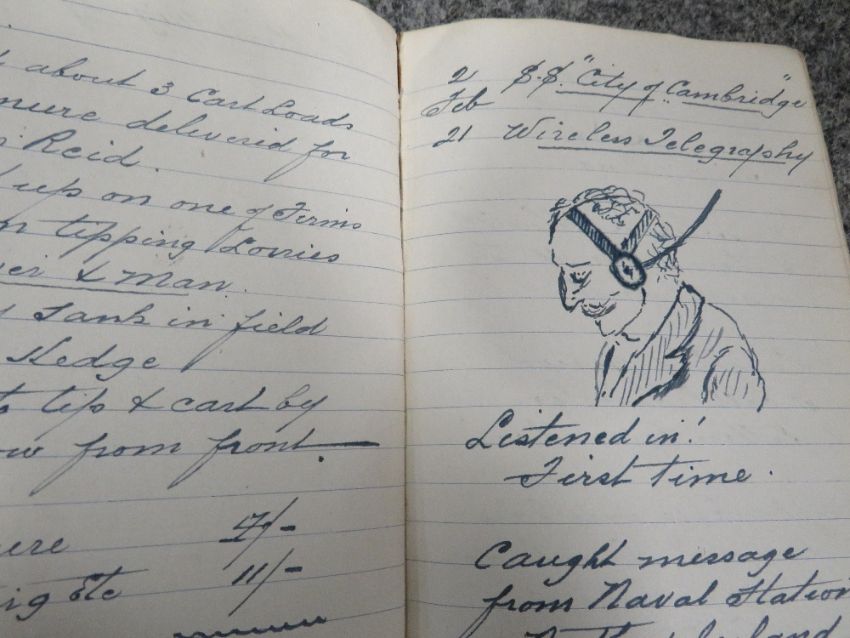 about 3 Cart Loads
delivered for
Reid.
up on one of Firm's
tipping Lorries
& Man.
Tank in field
Hedge
tip & cart by
from front.
4/-
11/-
Etc
2
Feb
21
S.S. "City of Cambridge"
Wireless Telegraphy
Listened in!
First time.
Caught message
from Naval Station